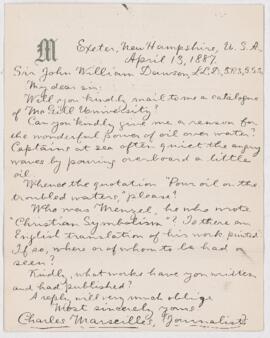 M
Exeter, New Hampshire, U.S.A.
April 13, 1887.
Sir John William Dawson, LL.D., F.R.S., F.G.S.
My dear sir:
Will you kindly mail to me a catalogue
of McGill University?
Can you kindly give me a reason for
the wonderful power of oil over water?
Captains at sea often quiet the angry
waves by pouring overboard a little
oil.
Whence the quotation "Pour oil on the
troubled waters," please?
Who was Menzel, he who wrote
"Christian Symbolism"? Is there an
English translation of his work printed?
If so, where or of whom to be had or
seen?
Kindly, what works have you written
and had published?
A reply will very much oblige
Most sincerely yours
Charles Marseilles, Journalist